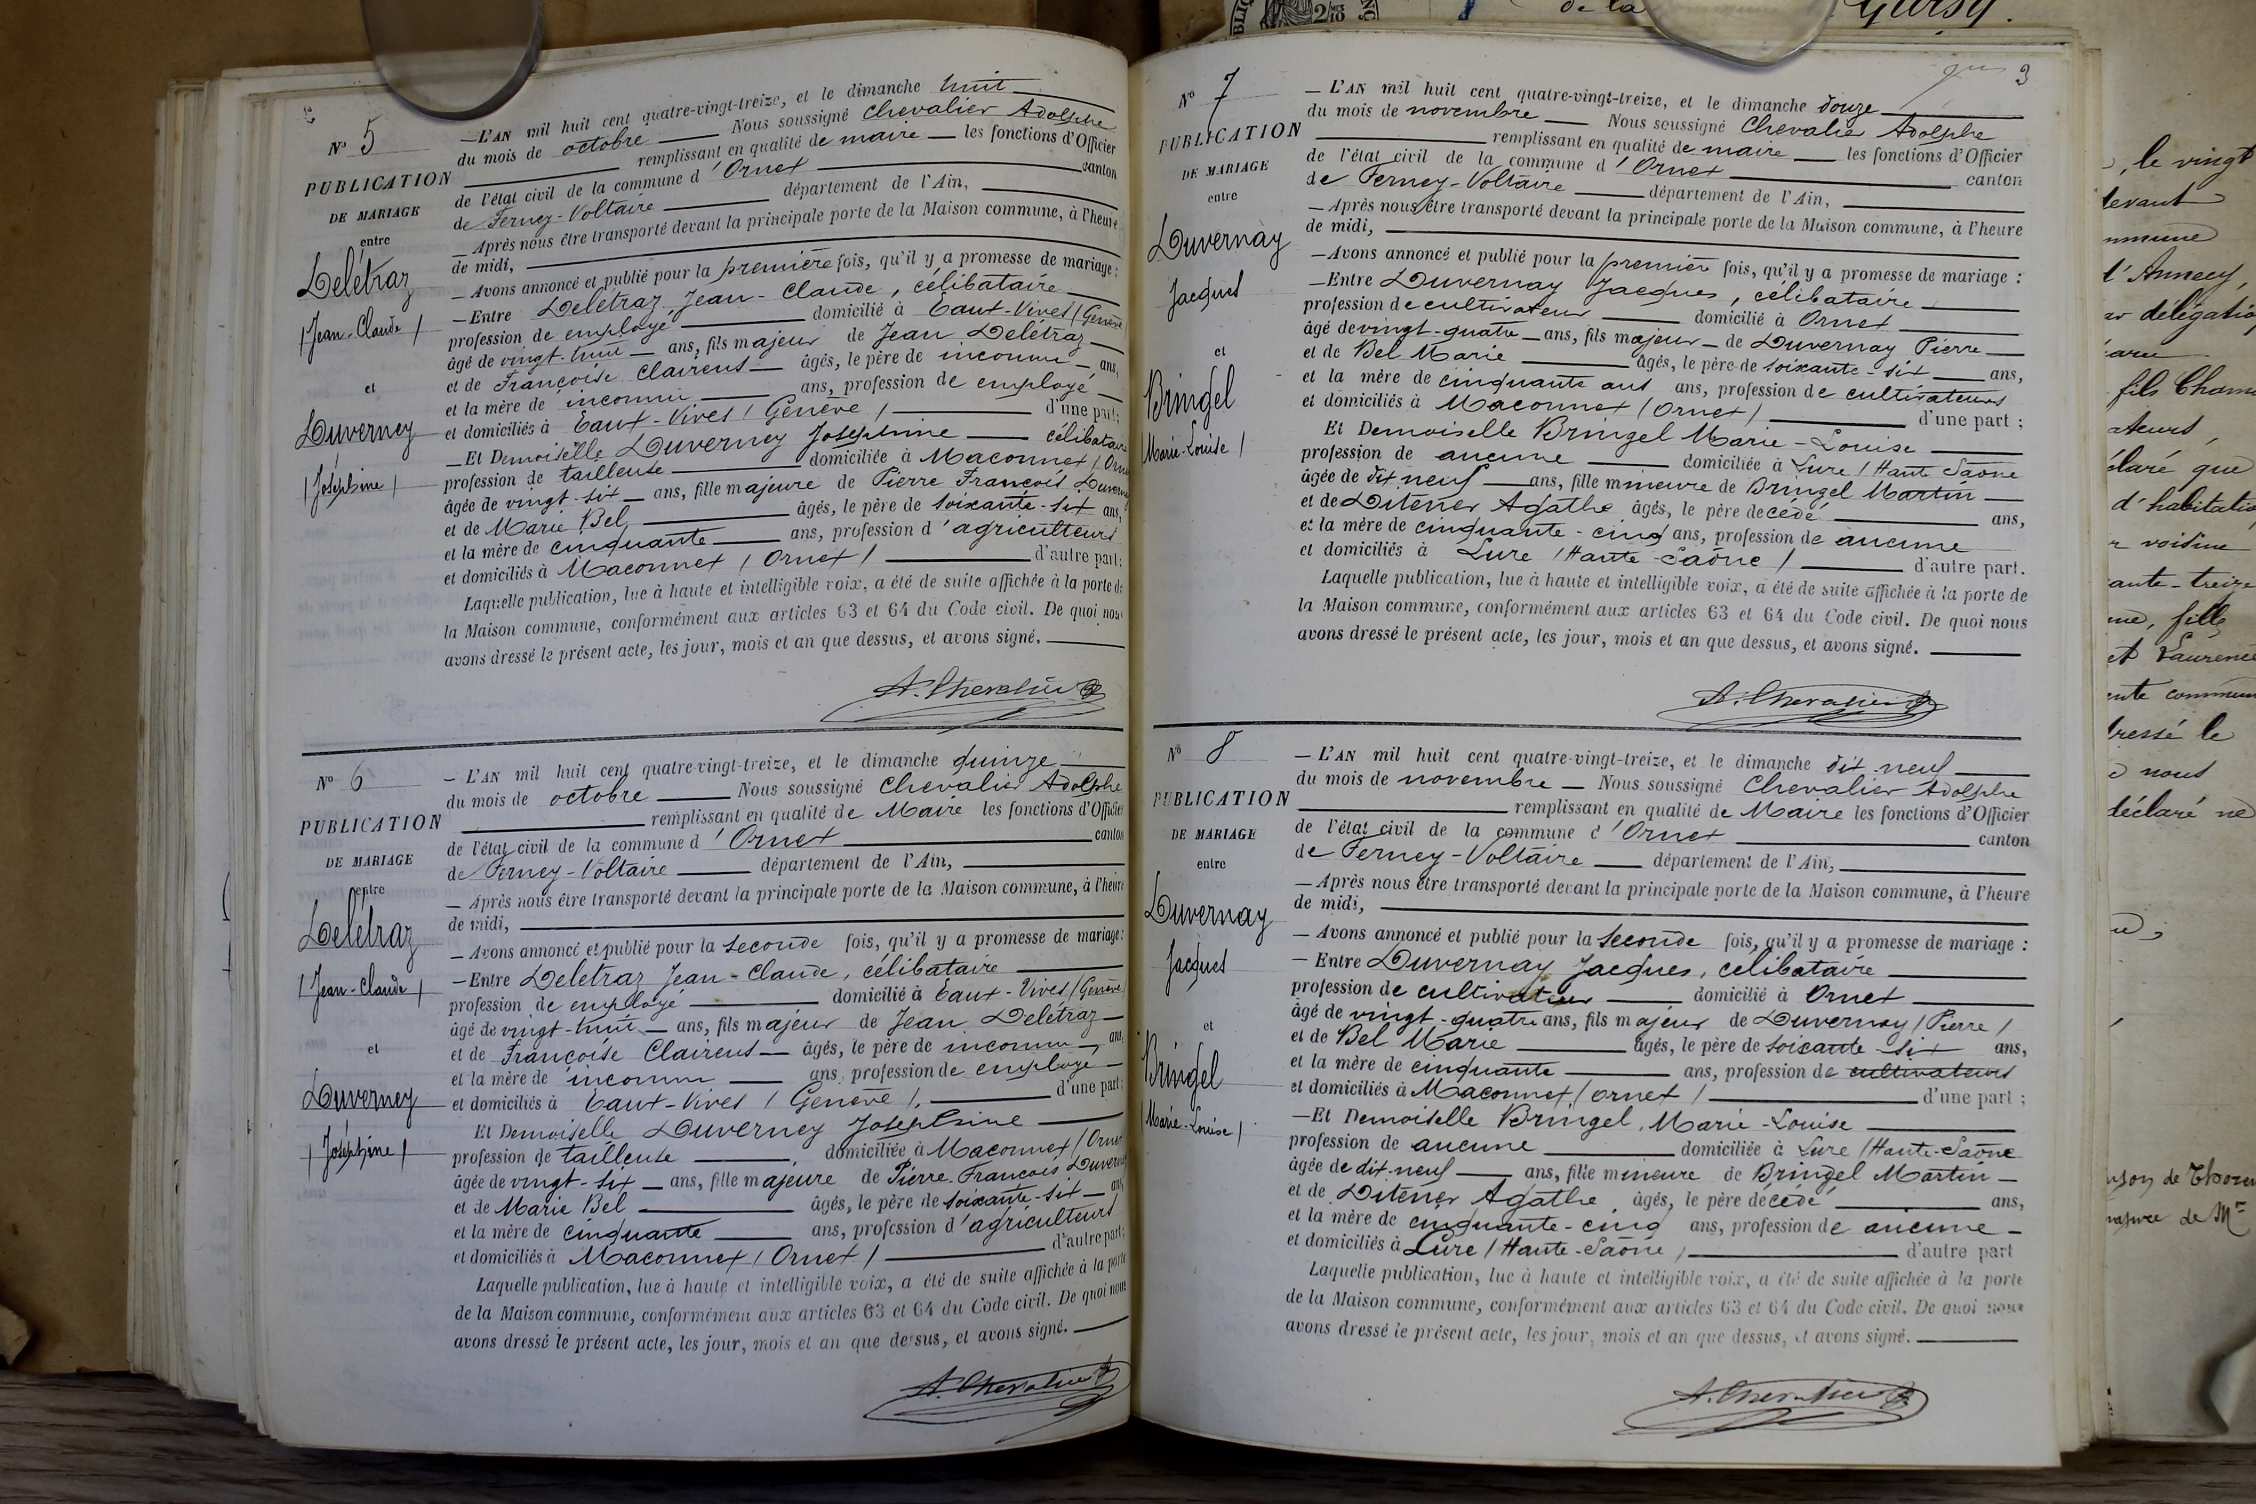 N° 5
PUBLICATION
DE MARIAGE
entre
Delétraz
/ Jean-Claude /
et
Duverney
/ Joséphine /
— L'AN mil huit cent quatre-vingt-treize, et le dimanche huit
du mois de octobre Nous soussigné Chevalier Adolphe
remplissant en qualité de maire les fonctions d'Officier
de l'état civil de la commune d'Ornex canton
de Ferney-Voltaire département de l'Ain,
— Après nous être transporté devant la principale porte de la Maison commune, à l'heure
de midi,
— Avons annoncé et publié pour la première fois, qu'il y a promesse de mariage :
— Entre Delétraz Jean-Claude, célibataire
profession de employé domicilié à Eaux-Vives / Genève
âgé de vingt-huit ans, fils majeur de Jean Delétraz
et de Françoise Clairens âgés, le père de inconnu ans,
et la mère de inconnu ans, profession de employé
et domiciliés à Eaux-Vives / Genève / d'une part ;
— Et Demoiselle Duverney Joséphine célibataire
profession de tailleuse domiciliée à Maconnex / Ornex
âgée de vingt-six ans, fille majeure de Pierre François Duverney
et de Marie Bel âgés, le père de soixante-six ans,
et la mère de cinquante ans, profession d'agriculteurs
et domiciliés à Maconnex / Ornex / d'autre part ;
Laquelle publication, lue à haute et intelligible voix, a été de suite affichée à la porte de
la Maison commune, conformément aux articles 63 et 64 du Code civil. De quoi nous
avons dressé le présent acte, les jour, mois et an que dessus, et avons signé.
A. Chevalier
N° 6
PUBLICATION
DE MARIAGE
entre
Delétraz
/ Jean-Claude /
et
Duverney
/ Joséphine /
— L'AN mil huit cent quatre-vingt-treize, et le dimanche quinze
du mois de octobre Nous soussigné Chevalier Adolphe
remplissant en qualité de Maire les fonctions d'Officier
de l'état civil de la commune d'Ornex canton
de Ferney-Voltaire département de l'Ain,
— Après nous être transporté devant la principale porte de la Maison commune, à l'heure
de midi,
— Avons annoncé et publié pour la seconde fois, qu'il y a promesse de mariage :
— Entre Delétraz Jean-Claude, célibataire
profession de employé domicilié à Eaux-Vives / Genève
âgé de vingt-huit ans, fils majeur de Jean Delétraz
et de Françoise Clairens âgés, le père de inconnu ans,
et la mère de inconnu ans, profession de employé
et domiciliés à Eaux-Vives / Genève /, d'une part ;
Et Demoiselle Duverney Joséphine
profession de tailleuse domiciliée à Maconnex / Ornex
âgée de vingt-six ans, fille majeure de Pierre-François Duverney
et de Marie Bel âgés, le père de soixante-six ans,
et la mère de cinquante ans, profession d'agriculteurs
et domiciliés à Maconnex / Ornex / d'autre part ;
Laquelle publication, lue à haute et intelligible voix, a été de suite affichée à la porte
de la Maison commune, conformément aux articles 63 et 64 du Code civil. De quoi nous
avons dressé le présent acte, les jour, mois et an que dessus, et avons signé.
A. Chevalier
3
N° 7
PUBLICATION
DE MARIAGE
entre
Duvernay
Jacques
et
Bringel
/ Marie-Louise /
— L'AN mil huit cent quatre-vingt-treize, et le dimanche douze
du mois de novembre Nous soussigné Chevalier Adolphe
remplissant en qualité de maire les fonctions d'Officier
de l'état civil de la commune d'Ornex canton
de Ferney-Voltaire département de l'Ain,
— Après nous être transporté devant la principale porte de la Maison commune, à l'heure
de midi,
— Avons annoncé et publié pour la première fois, qu'il y a promesse de mariage :
— Entre Duvernay Jacques, célibataire
profession de cultivateur domicilié à Ornex
âgé de vingt-quatre ans, fils majeur de Duvernay Pierre
et de Bel Marie âgés, le père de soixante-six ans,
et la mère de cinquante ans ans, profession de cultivateurs
et domiciliés à Maconnex / Ornex / d'une part ;
Et Demoiselle Bringel Marie-Louise
profession de aucune domiciliée à Lure / Haute Saône
âgée de dix neuf ans, fille mineure de Bringel Martin
et de Ditener Agathe âgés, le père decédé ans,
et la mère de cinquante-cinq ans, profession de aucune
et domiciliés à Lure / Haute-Saône / d'autre part.
Laquelle publication, lue à haute et intelligible voix, a été de suite affichée à la porte de
la Maison commune, conformément aux articles 63 et 64 du Code civil. De quoi nous
avons dressé le présent acte, les jour, mois et an que dessus, et avons signé.
A. Chevalier
N° 8
PUBLICATION
DE MARIAGE
entre
Duvernay
Jacques
et
Bringel
/ Marie-Louise /
— L'AN mil huit cent quatre-vingt-treize, et le dimanche dix neuf
du mois de novembre Nous soussigné Chevalier Adolphe
remplissant en qualité de Maire les fonctions d'Officier
de l'état civil de la commune d'Ornex canton
de Ferney-Voltaire département de l'Ain,
— Après nous être transporté devant la principale porte de la Maison commune, à l'heure
de midi,
— Avons annoncé et publié pour la seconde fois, qu'il y a promesse de mariage :
— Entre Duvernay Jacques, célibataire
profession de cultivateur domicilié à Ornex
âgé de vingt-quatre ans, fils majeur de Duvernay / Pierre /
et de Bel Marie âgés, le père de soixante-six ans,
et la mère de cinquante ans, profession de cultivateurs
et domiciliés à Maconnex / Ornex / d'une part ;
— Et Demoiselle Bringel, Marie-Louise
profession de aucune domiciliée à Lure / Haute-Saône
âgée de dix-neuf ans, fille mineure de Bringel Martin
et de Ditener Agathe âgés, le père decédé ans,
et la mère de cinquante-cinq ans, profession de aucune
et domiciliés à Lure / Haute-Saône / d'autre part
Laquelle publication, lue à haute et intelligible voix, a été de suite affichée à la porte
de la Maison commune, conformément aux articles 63 et 64 du Code civil. De quoi nous
avons dressé le présent acte, les jour, mois et an que dessus, et avons signé.
A. Chevalier
de la
le vingt
devant
d'Annecy,
délégation
fils
que
d'habitation
voisine
treize
fille
et Laurence
le
nous
déclaré ne